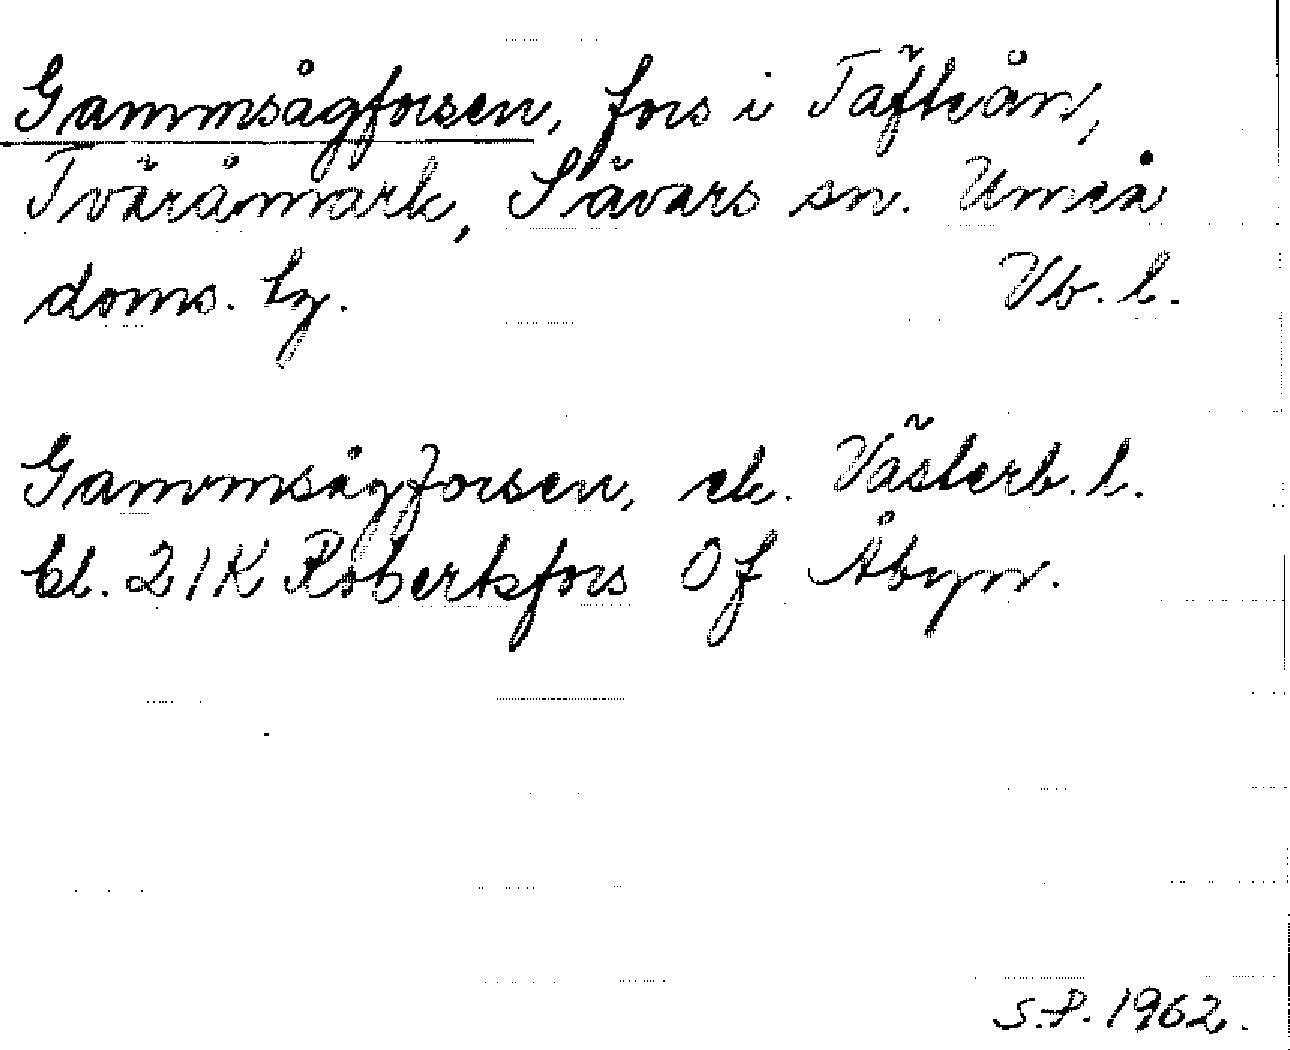 Gammsågforsen, fors i Täfteån,
Tväråmark, Sävars sn. Umeå
doms. tg. Vb. l.
Gammsågforsen, ek. Västerb. l.
bl. 21K Robertsfors 0f Åbyn.
S.P. 1962.